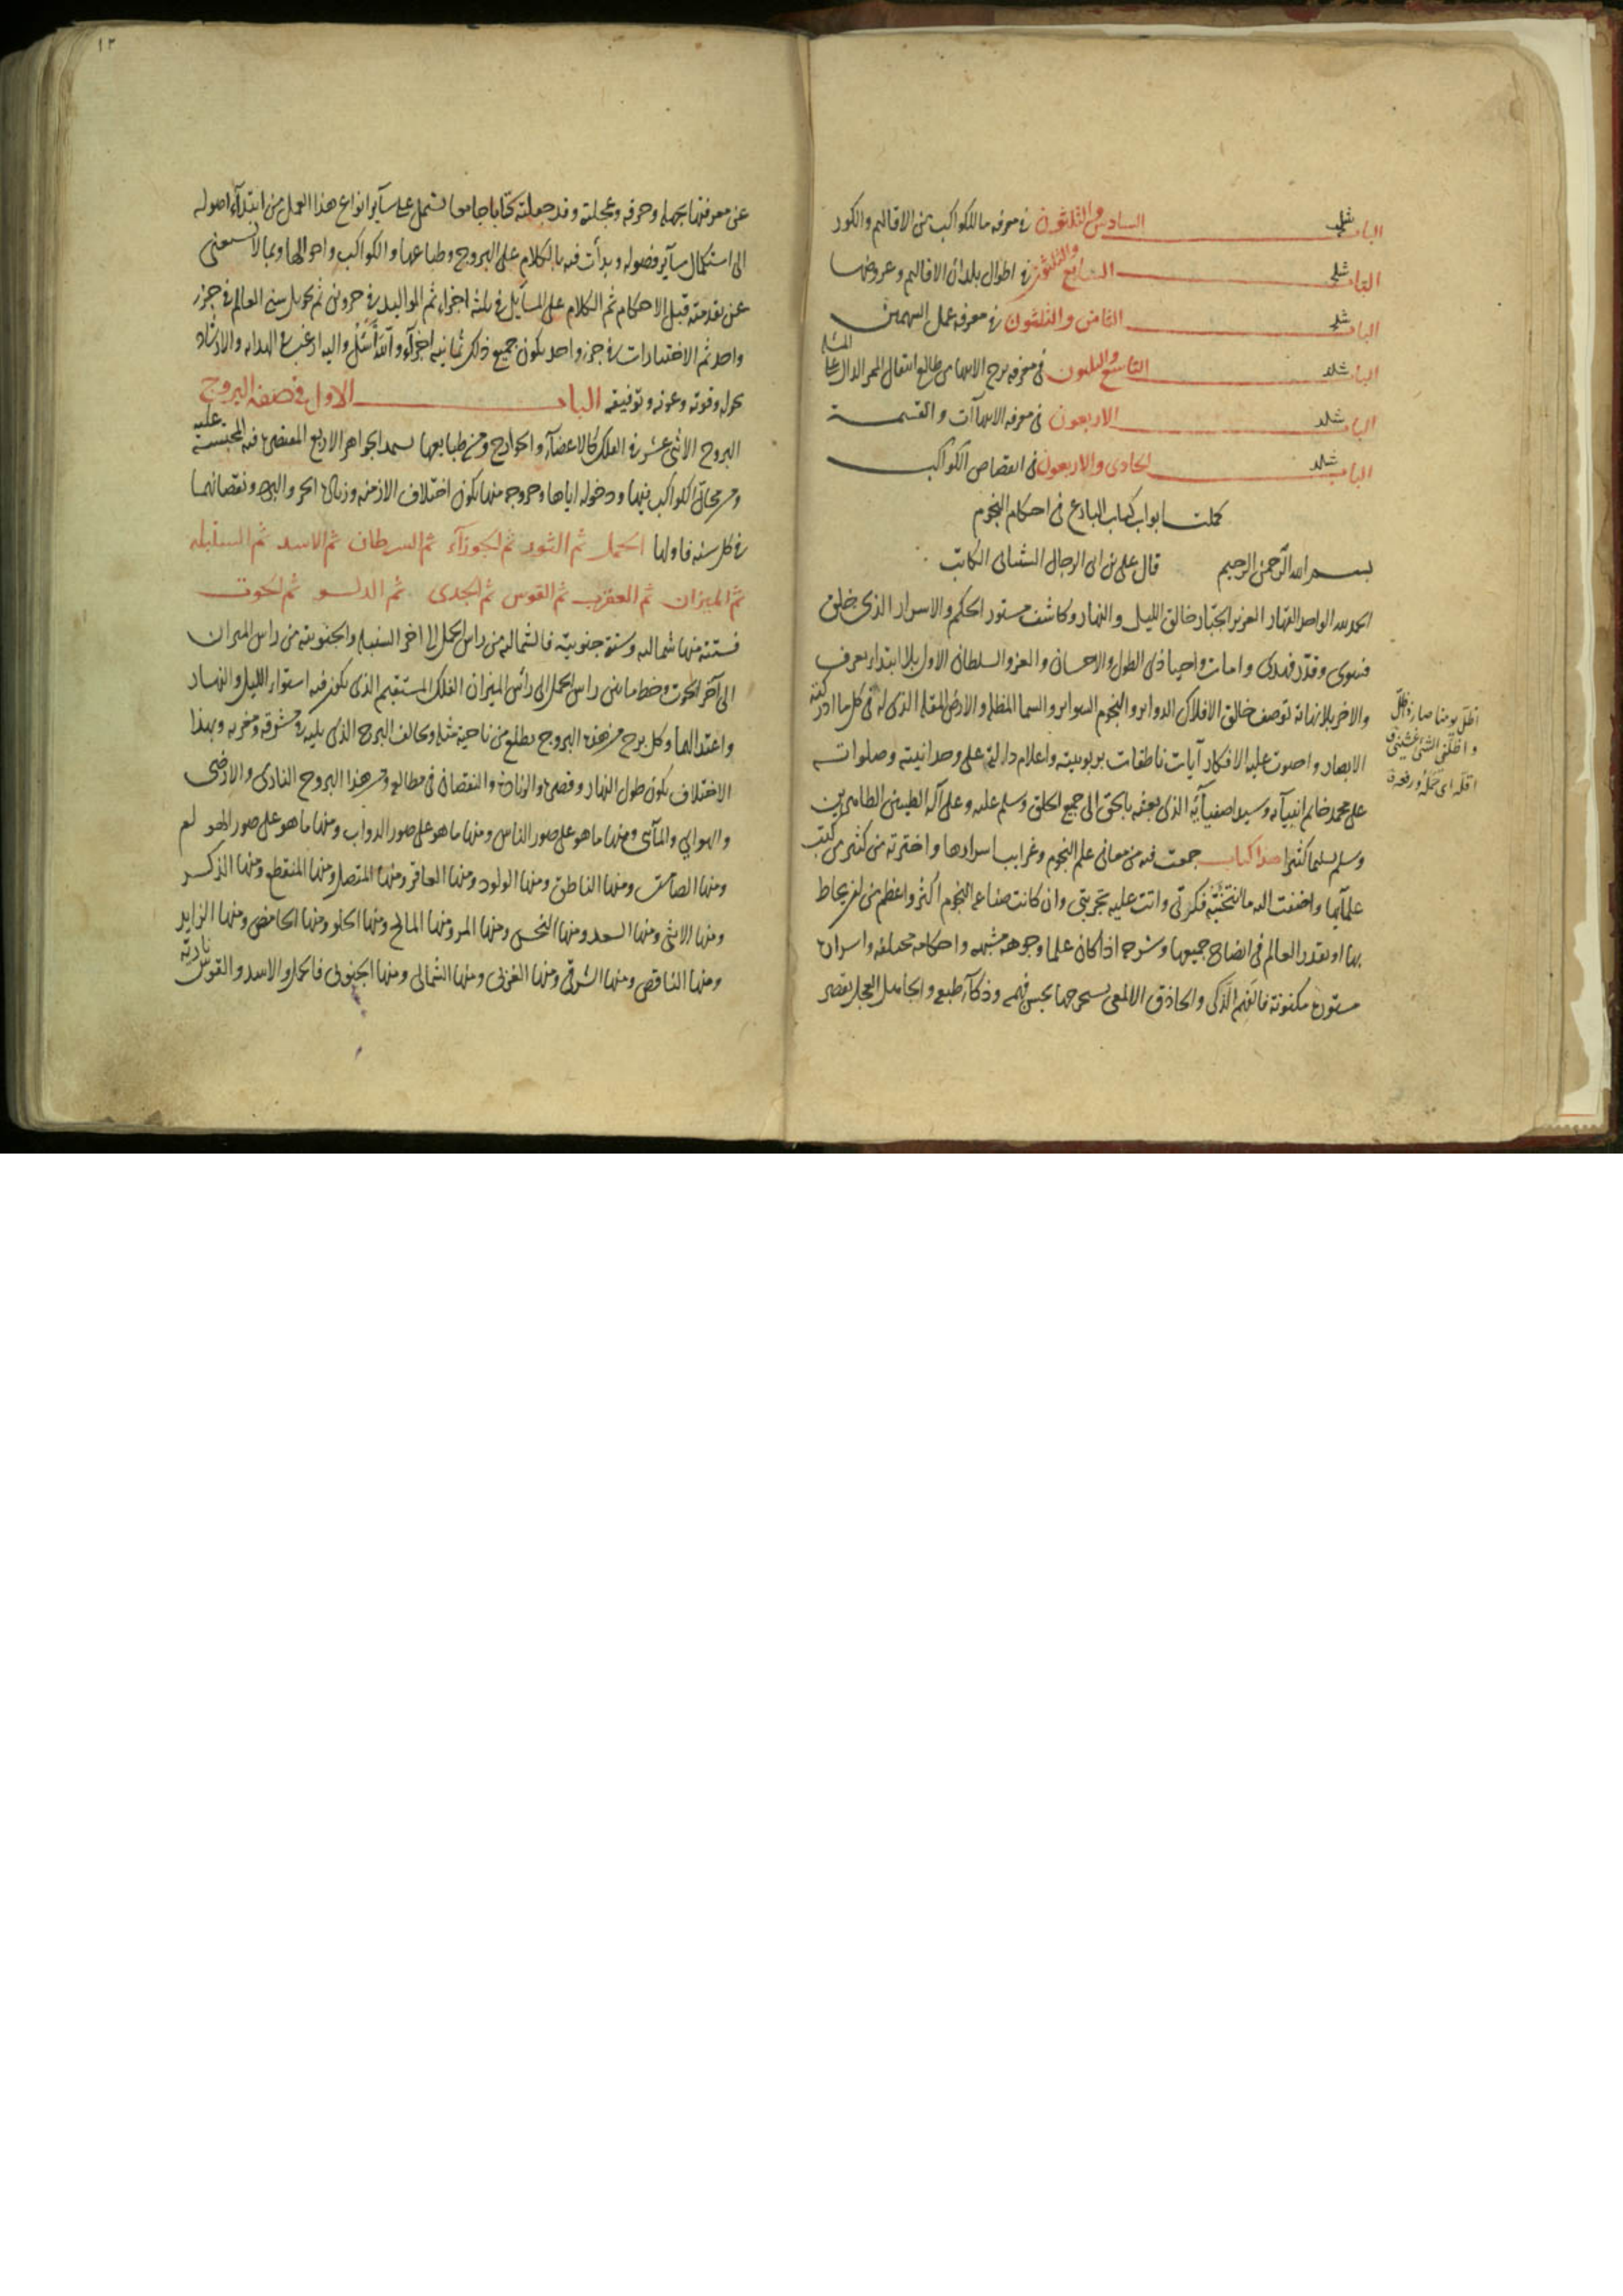 الباب السادس والثلثون في معرفه ما للكواكب من الاقاليم والكور
الباب السابع والثلثون في اطوال بلدان الاقاليم وعروضها
الباب الثامن والثلثون في معرفه عمل السهمين
الباب التاسع والثلثون في معرفه برج الانتهاء من طالع انتقال الممر الدال على
الباب الاربعون في معرفه الانتهاآت والقسمة
الباب الحادى والاربعون في اتصاص الكواكب
كملت ابواب كتاب البارع فى احكام النجوم
بسم الله الرحمن الرحيم قال على بن ابى الرجال الشيبانى الكاتب
الحمد لله الواحد القهار العزيز الجبار خالق الليل والنهار وكاشف مستور الحكم والاسرار الذى خلق
فسوى وقدر فهدى وامات واحيا ذى الطول والاحسان والعز والسلطان الاول بلا ابتداء يعرف
والاخر بلا نهاية توصف خالق الافلاك الدواير والنجوم السواير والسما المظلة والارض المقلة الذى له فى كل ما ادركته
الابصار واحتوت عليه الافكار آيات ناطقات بربوبيته واعلام دالة على وحدانيته وصلواته
على محمد خاتم انبيآئه وسيد اصفيآئه الذى بعثه بالحق الى جميع الخلق وسلم عليه وعلى آله الطيبين الطاهرين
وسلم تسليما كثيرا هذا كتاب جمعت فيه من معانى علم النجوم وغرايب اسرارها واخترته من كثير من كتب
علمآيها واضفت اليه ما انتخبته فكرتى واتت عليه تجربتى وان كانت صناعة النجوم اكثر واعظم من ان يحاط
بها او يقدر العالم فى ايضاح جميعها وشرحه اذا كان علما وجوهه مشتبهة واحكامه مختلفة واسراره
مستورة مكنونة فالفهم الذكى والحاذق الالمعى يستخرجها بحسن فهمه وذكآء طبعه والجاهل العجل يقصر
اظل يومنا صار ذا ظل
واظلنى الشئ غشينى
اقله اى حمله ورفعه
١٢
عن معرفتها بجهله وحرفه وعجلته وقد جعلته كتابا جامعا يشتمل على سآير انواع هذا العمل من ابتدآء اصوله
الى استكمال سآير فصوله وبدأت فيه بالكلام على البروج وطباعها والكواكب واحوالها وبما لا يستغنى
عن تقدمته قبل الاحكام ثم الكلام على المسآيل فى ثلثة اجزاء ثم المواليد فى جزوين ثم تحويل سنى العالم فى جزو
واحد ثم الاختيارات فى جزو واحد يكون جميع ذلك ثمانية اجزآء والله أسئل واليه ارغب فى الهداية والارشاد
بحوله وقوته وعونه وتوفيقه الباب الاول فى صفة البروج
البروج الاثنى عشر فى الفلك كالاعضآء والجوارح ومن طبايعها تستمد الجواهر الاربع المقتضى فيه المحتبسة عليه
ومن مجارى الكواكب فيها ودخوله اياها وخروجه منها يكون اختلاف الازمنه وزيادة الحر والبرد ونقصانهما
فى كل سنه فاولها الحمل ثم الثور ثم الجوزآء ثم السرطان ثم الاسد ثم السنبله
ثم الميزان ثم العقرب ثم القوس ثم الجدى ثم الدلو ثم الحوت
فستة منها شمالية وستة جنوبية فالشمالية من راس الحمل الى اخر السنبلة والجنوبية من راس الميزان
الى آخر الحوت وخط ما بين راس الحمل الى رأس الميزان الفلك المستقيم الذى يكون فيه استواء الليل والنهار
واعتدالهما وكل برج من هذه البروج يطلع من ناحية مثله ويخالف البرج الذى يليه فى مشرقه ومغربه وبهذا
الاختلاف يكون طول النهار وقصره والزيادة والنقصان فى مطالعه ومن هذا البروج النارى والارضى
والهوايى والمآئى ومنها ما هو على صور الناس ومنها ما هو على صور الدواب ومنها ما هو على صور الهو لم
ومنها الصامت ومنها الناطق ومنها الولود ومنها العاقر ومنها المتصل ومنها المنقطع ومنها الذكر
ومنها الانثى ومنها السعد ومنها النحس ومنها المر ومنها المالح ومنها الحلو ومنها الحامض ومنها الزايد
ومنها الناقص ومنها الشرقى ومنها الغربى ومنها الشمالى ومنها الجنوبى فالحمل والاسد والقوس نارية